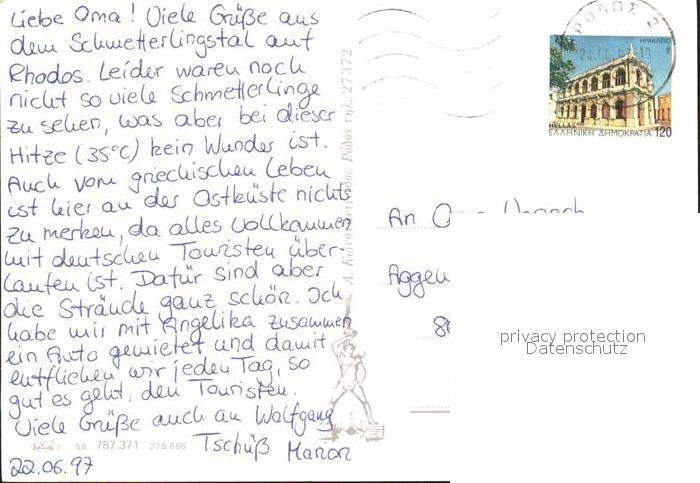 Liebe Oma! Viele Grüße aus
dem Schmetterlingstal auf
Rhodos. Leider waren noch
nicht so viele Schmetterlinge
zu sehen, was aber bei dieser
Hitze (35°C) kein Wunder ist.
Auch vom griechischen Leben
ist hier an der Ostküste nichts
zu merken, da alles vollkommen
mit deutschen Touristen über-
laufen ist. Dafür sind aber
die Strände ganz schön. Ich
habe mir mit Angelika zusammen
ein Auto gemietet und damit
entfliehen wir jeden Tag, so
gut es geht, den Touristen.
Viele Grüße auch an Wolfgang
Tschüß Marion
22.06.97
55 787.371 275 686
Ρόδος τηλ. 27372
ΡΟΔΟΣ 2
ΗΡΑΚΛΕΙΟ
HELLAS
ΕΛΛΗΝΙΚΗ ΔΗΜΟΚΡΑΤΙΑ 120
An
Aggen
8
privacy protection
Datenschutz